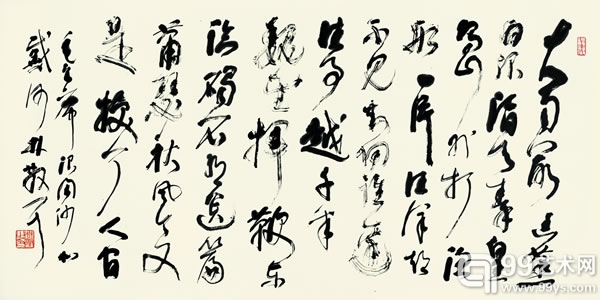 大雨落幽燕
白浪滔天秦皇
岛外打渔
船一片汪洋都
不见知向谁边
往事越千年
魏武挥鞭东
临碣石有遗篇
萧瑟秋风今又
是换了人间
毛主席浪淘沙北
戴河林散耳
99艺术网
www.99ys.com